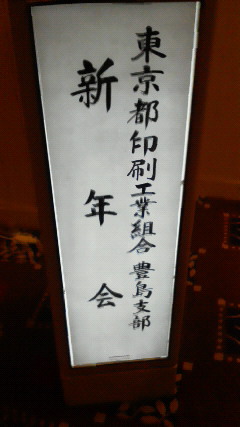 東京都印刷工業組合 豊島支部
新年会